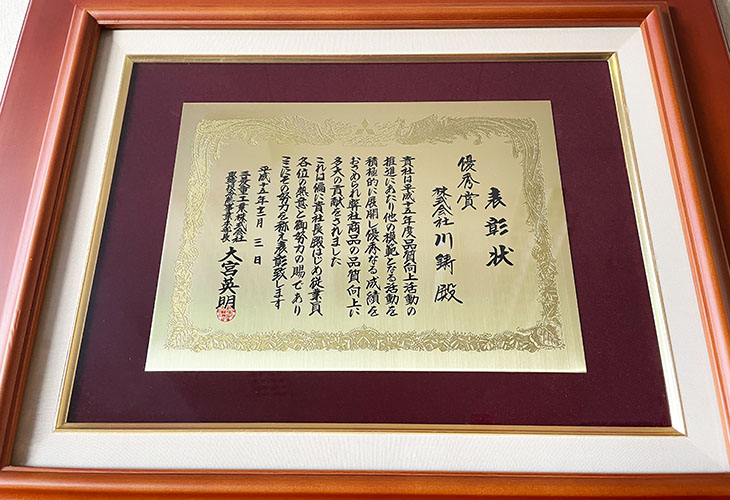 表彰状
優秀賞
株式会社 川鋳 殿
貴社は平成十五年度品質向上活動の
推進にあたり他の模範となる活動を
積極的に展開し優秀なる成績を
おさめられ弊社商品の品質向上に
多大の貢献をされました
これは偏に貴社長殿はじめ従業員
各位の熱意と御努力の賜であり
ここにその努力を称え表彰致します
平成十五年十二月三日
三菱重工業株式会社
大宮英明